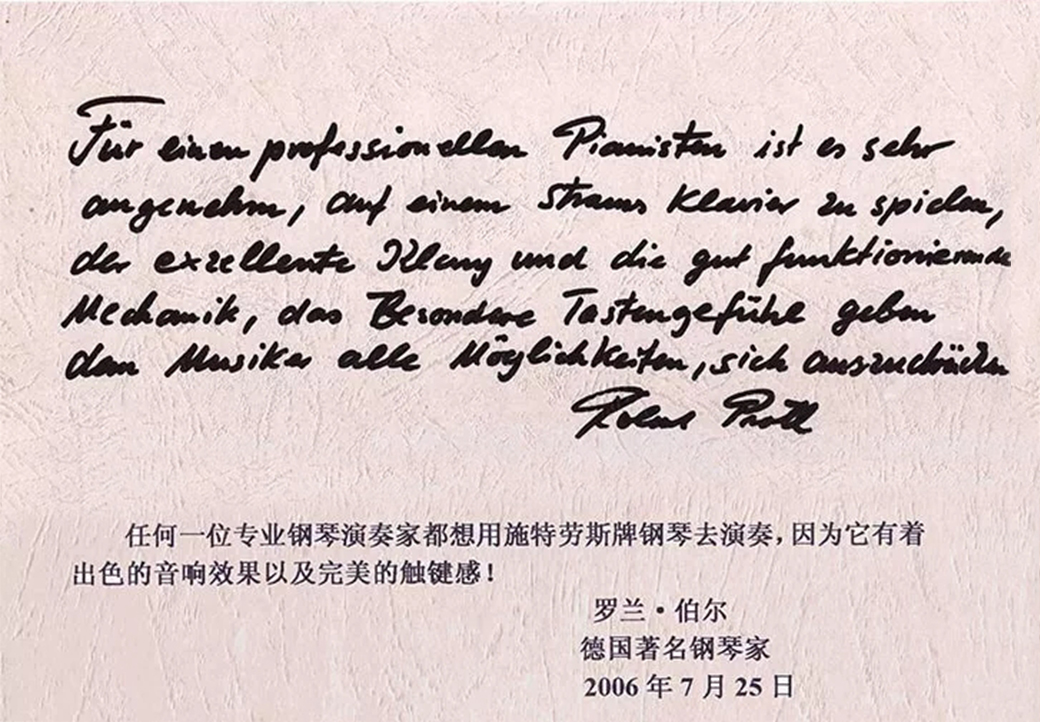 Für einen professionellen Pianisten ist es sehr
angenehm, auf einem Strauss Klavier zu spielen,
der exzellente Klang und die gut funktionierende
Mechanik, das Besondere Tastengefühl geben
dem Musiker alle Möglichkeiten, sich auszudrücken
任何一位专业钢琴演奏家都想用施特劳斯牌钢琴去演奏，因为它有着
出色的音响效果以及完美的触键感！
罗兰·伯尔
德国著名钢琴家
2006 年 7 月 25 日